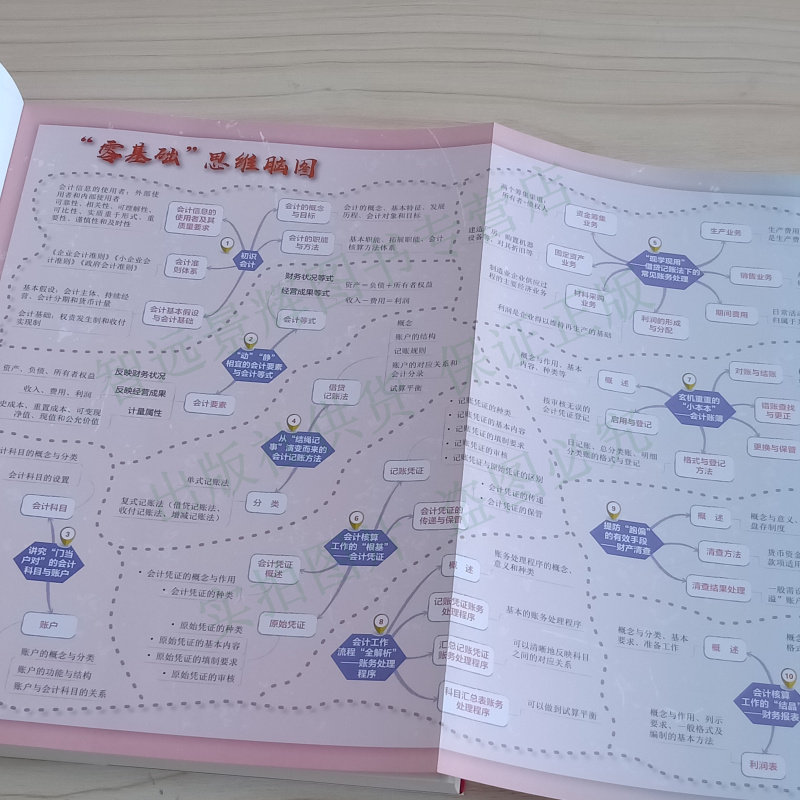 “零基础”思维脑图
会计信息的使用者：外部使
用者和内部使用者
可靠性、相关性、可理解性、
可比性、实质重于形式、重
要性、谨慎性和及时性
会计信息的
使用者及其
质量要求
会计的概念
与目标
会计的概念、基本特征、发展
历程、会计对象和目标
1
初识
会计
会计的职能
与方法
基本职能、拓展职能、会计
核算方法体系
《企业会计准则》《小企业会
计准则》《政府会计准则》
会计准
则体系
基本假设：会计主体、持续经
营、会计分期和货币计量
会计基础：权责发生制和收付
实现制
会计基本假设
与会计基础
财务状况等式
资产＝负债＋所有者权益
经营成果等式
收入－费用＝利润
会计等式
2
“动”“静”
相宜的会计要素
与会计等式
资产、负债、所有者权益
反映财务状况
收入、费用、利润
反映经营成果
史成本、重置成本、可变现
净值、现值和公允价值
计量属性
会计要素
概念
账户的结构
记账规则
账户的对应关系和
会计分录
试算平衡
借贷
记账法
4
从“结绳记
事”演变而来的
会计记账方法
单式记账法
复式记账法（借贷记账法、
收付记账法、增减记账法）
分 类
计科目的概念与分类
会计科目的设置
会计科目
3
讲究“门当
户对”的会计
科目与账户
账户
账户的概念与分类
账户的功能与结构
账户与会计科目的关系
• 记账凭证的种类
• 记账凭证的基本内容
• 记账凭证的填制要求
• 记账凭证的审核
• 记账凭证与原始凭证的区别
记账凭证
• 会计凭证的传递
• 会计凭证的保管
会计凭证的
传递与保管
6
会计核算
工作的“根基”
——会计凭证
会计凭证
概述
• 会计凭证的概念与作用
• 会计凭证的种类
原始凭证
• 原始凭证的种类
• 原始凭证的基本内容
• 原始凭证的填制要求
• 原始凭证的审核
8
会计工作
流程“全解析”
——账务处理
程序
概 述
账务处理程序的概念、
意义和种类
记账凭证账务
处理程序
基本的账务处理程序
汇总记账凭证
账务处理程序
可以清晰地反映科目
之间的对应关系
科目汇总表账务
处理程序
可以做到试算平衡
两个筹集渠道：
所有者、债权人
资金筹集
业务
建造厂房、购置机器
设备等，对其折旧等
固定资产
业务
制造业企业供应过
程的主要经济业务
材料采购
业务
利润是企业得以维持再生产的基础
利润的形成
与分配
5
“现学现用”
——借贷记账法下的
常见账务处理
生产业务
生产费用
是生产费
销售业务
期间费用
日常活动
归属于
概念与作用、基本
内容、种类等
概 述
按审核无误的
会计凭证登记
启用与登记
日记账、总分类账、明细
分类账的格式与登记
格式与登记
方法
7
玄机重重的
“小本本”
——会计账簿
对账与结账
错账查找
与更正
更换与保管
9
提防“跑偏”
的有效手段
——财产清查
概 述
概念与意义、
盘存制度
清查方法
货币资金
款项适用
清查结果处理
一般需设
溢”账户
概念与分类、基本
要求、准备工作
概 述
10
会计核算
工作的“结晶”
——财务报表
概念与作用、列示
要求、一般格式及
编制的基本方法
利润表